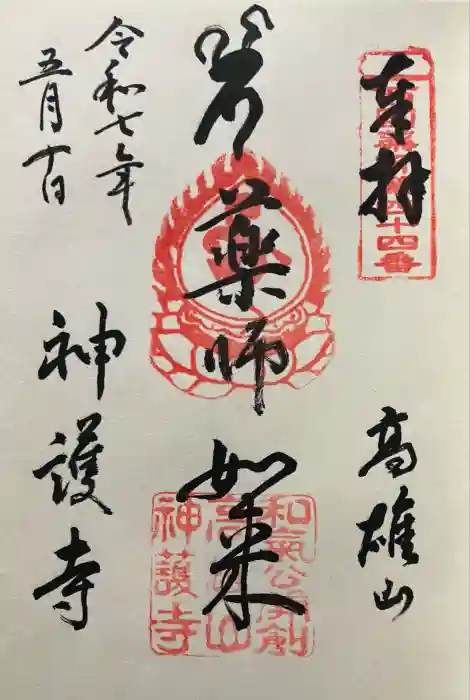 奉拝
四十四番
高雄山
薬師如来
和氣公
創
高雄山
神護寺
令和七年
五月十日
神護寺